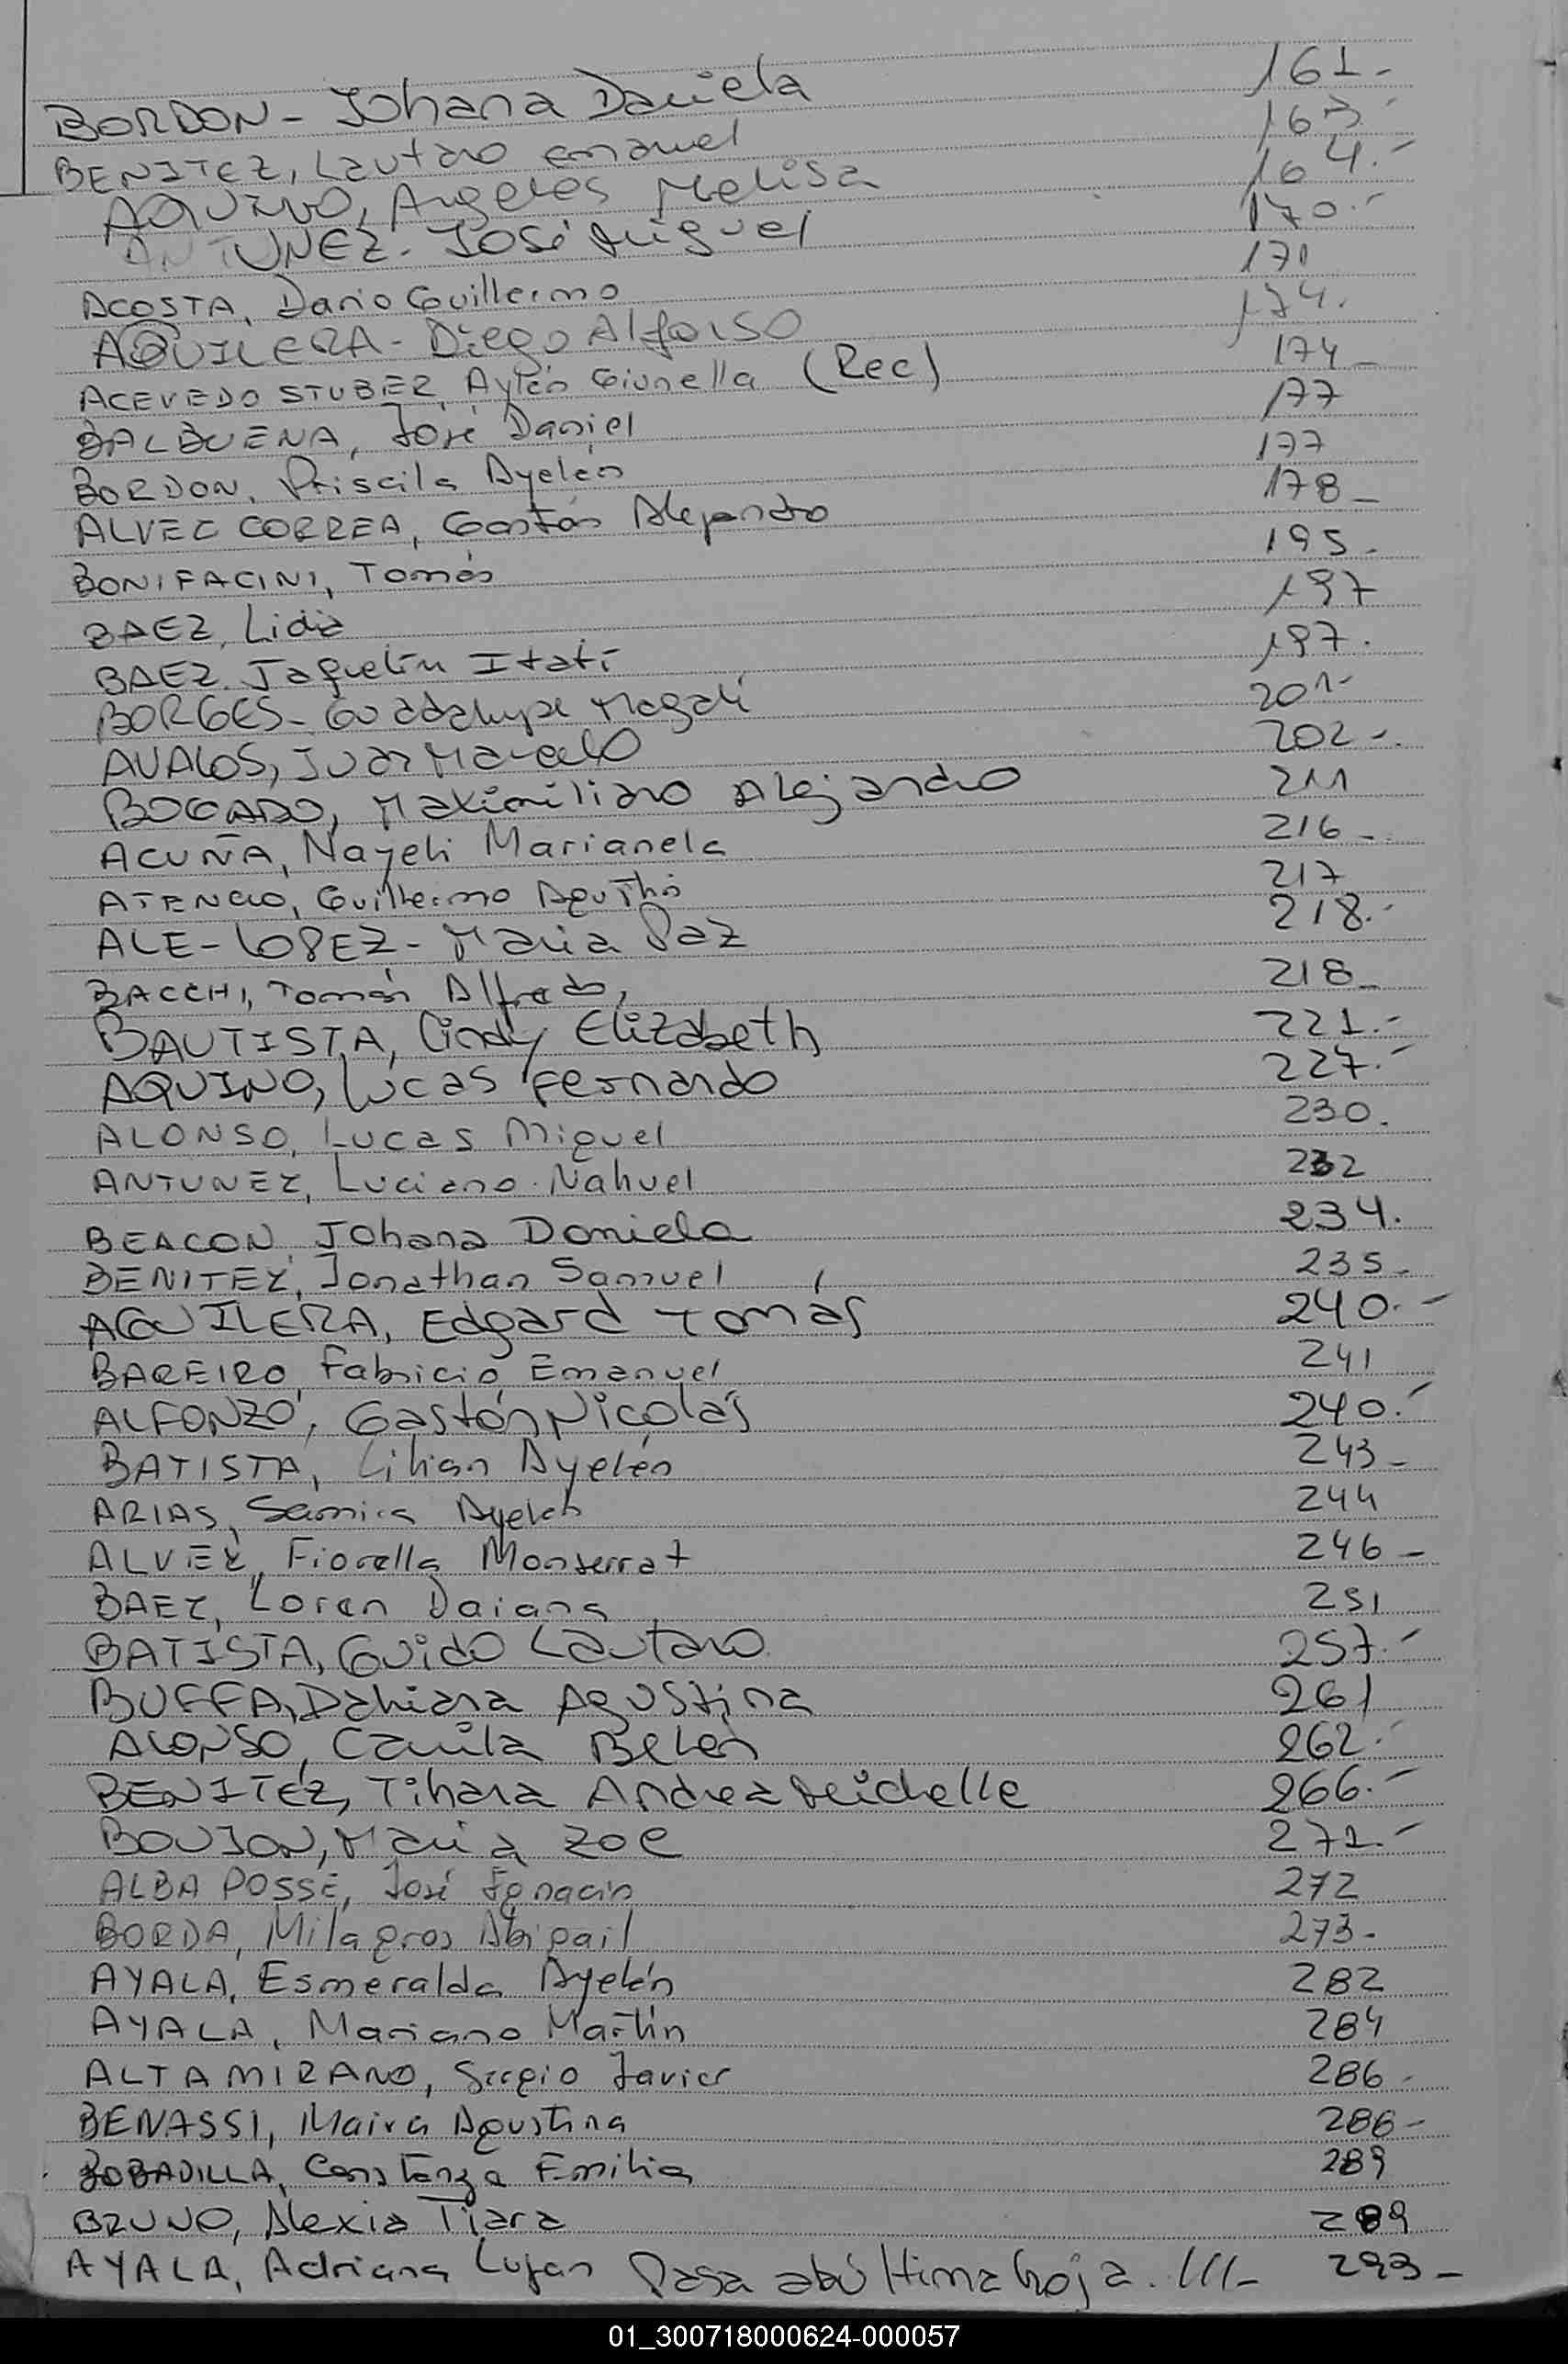 BORDON - Johana Daniela 161.-
BENITEZ, Lautaro Emanuel 163.-
AQUINO, Angeles Melisa 164.-
ANTUNEZ. José Miguel 170.-
ACOSTA, Dario Guillermo 171
AQUILERA - Diego Alfonso 174.
ACEVEDO STUBER, Aylén Gionella (Rec) 174-
BALBUENA, José Daniel 177
BORDON, Priscila Ayelén 177
ALVEZ CORREA, Gastón Alejandro 178-
BONIFACINI, Tomás 195.
BAEZ, Lidia 197
BAEZ. Jaquelín Itatí 197.
BORGES - Guadalupe Magalí 201-
AVALOS, Juan Marcelo 202-.
BOGADO, Maximiliano Alejandro 211
ACUÑA, Nayeli Marianela 216-
ATENCIO, Guillermo Agustín 217
ALE - LOPEZ - Maria Paz 218.-
BACCHI, Tomás Alfredo, 218-
BAUTISTA, Cindy Elizabeth 221.-
AQUINO, Lucas Fernando 227.-
ALONSO, Lucas Miguel 230.
ANTUNEZ, Luciano Nahuel 232
BEACON, Johana Daniela 234.
BENITEZ, Jonathan Samuel 235-
AGUILERA, Edgard Tomás 240.-
BAREIRO, Fabricio Emanuel 241
ALFONZO, Gastón Nicolás 240.-
BATISTA, Lilian Ayelén 243-
ARIAS, Samira Ayelén 244
ALVEZ, Fiorella Monserrat 246-
BAEZ, Loren Daiana 251
BATISTA, Guido Lautaro 257.-
BUFFA, Dahiana Agustina 261
ALONSO, Camila Belen 262.-
BENITEZ, Tihara Andrea Michelle 266.-
BOUJON, Maria Zoe 271.-
ALBA POSSE, José Ignacio 272
BORDA, Milagros Abigail 273-
AYALA, Esmeralda Ayelén 282
AYALA, Mariano Martín 284
ALTAMIRANO, Sergio Javier 286-
BENASSI, Maira Agustina 286-
BOBADILLA, Constanza Emilia 289
BRUNO, Alexia Tiara 289
AYALA, Adriana Lujan Pasa a última hoja. ///- 293-
01_300718000624-000057